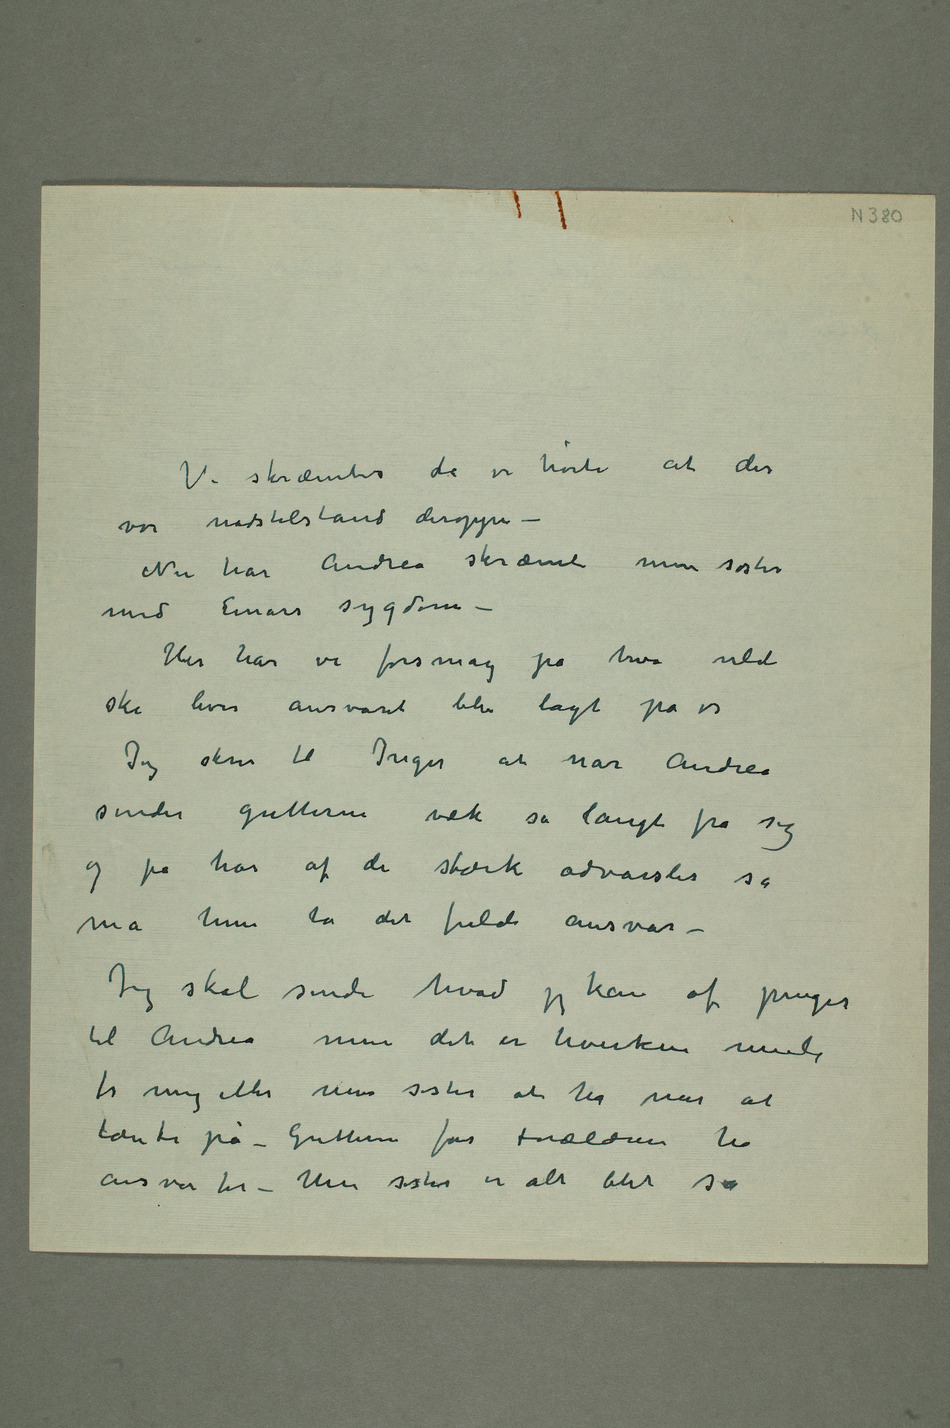 N 380
Vi skræmtes da vi hørte at der
var nødstilstand deroppe –
Nu har Andrea skræmt min søster
med Einars sygdom –
Her har vi forsmag på hva vild
ske hvis ansvaret blir lagt på os
Jeg skrev til Inger at når Andrea
sender gutterne væk så langt fra sig
og på trods af de stærk advarsler så
må hun ta det fulde ansvar –
Jeg skal sende hvad jeg kan af penger
til Andrea men det er hverken mulig
for mig eller min søster at ha mer at
tænke på – Gutterne får forældrene ha
ansvar for – Min søster er alt blet så